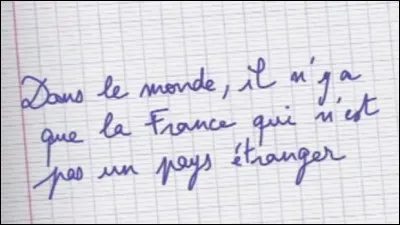 Dans le monde, il n'y a
que la France qui n'est
pas un pays étranger